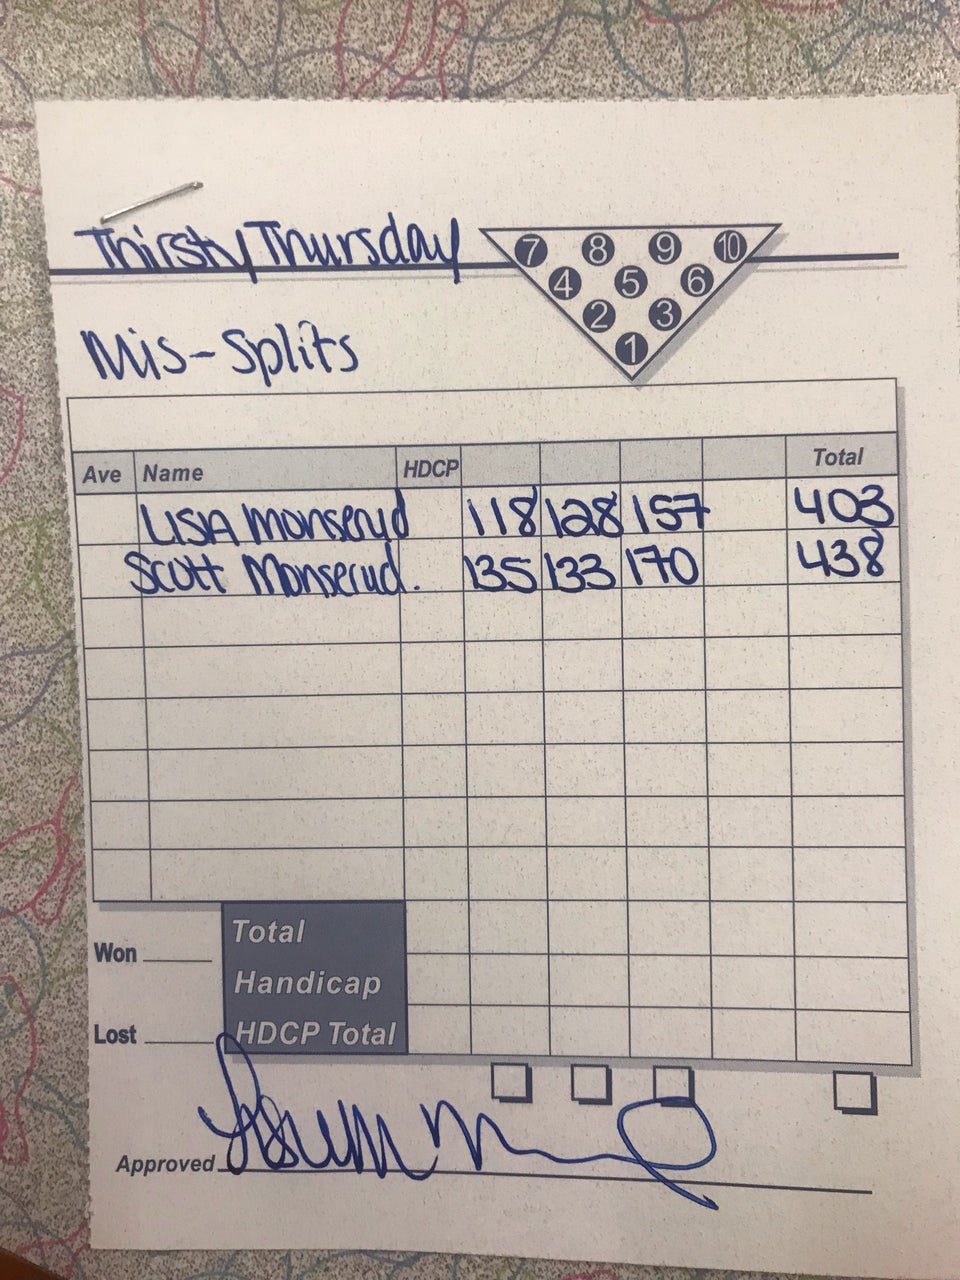 Thirsty Thursday
7 8 9 10
4 5 6
2 3
1
Mis-Splits
Ave Name HDCP Total
LISA Monserud 118 128 157 403
Scott Monserud. 135 133 170 438
Total
Won
Handicap
Lost HDCP Total
Approved